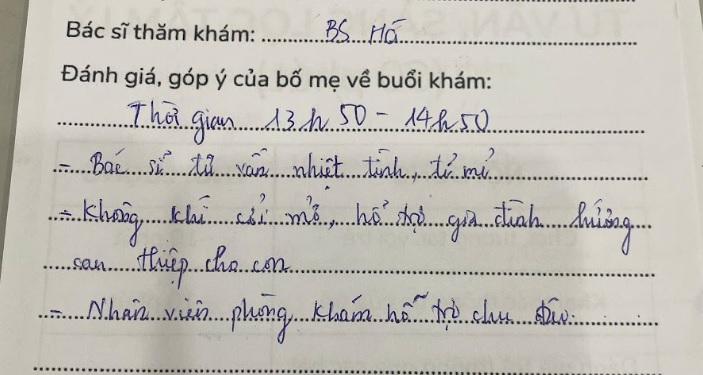 Bác sĩ thăm khám: BS Hà
Đánh giá, góp ý của bố mẹ về buổi khám:
Thời gian 13h50 - 14h50
- Bác sĩ tư vấn nhiệt tình, tỉ mỉ
- Không khí cởi mở, hỗ trợ gia đình hướng
can thiệp cho con
- Nhân viên phòng khám hỗ trợ chu đáo.